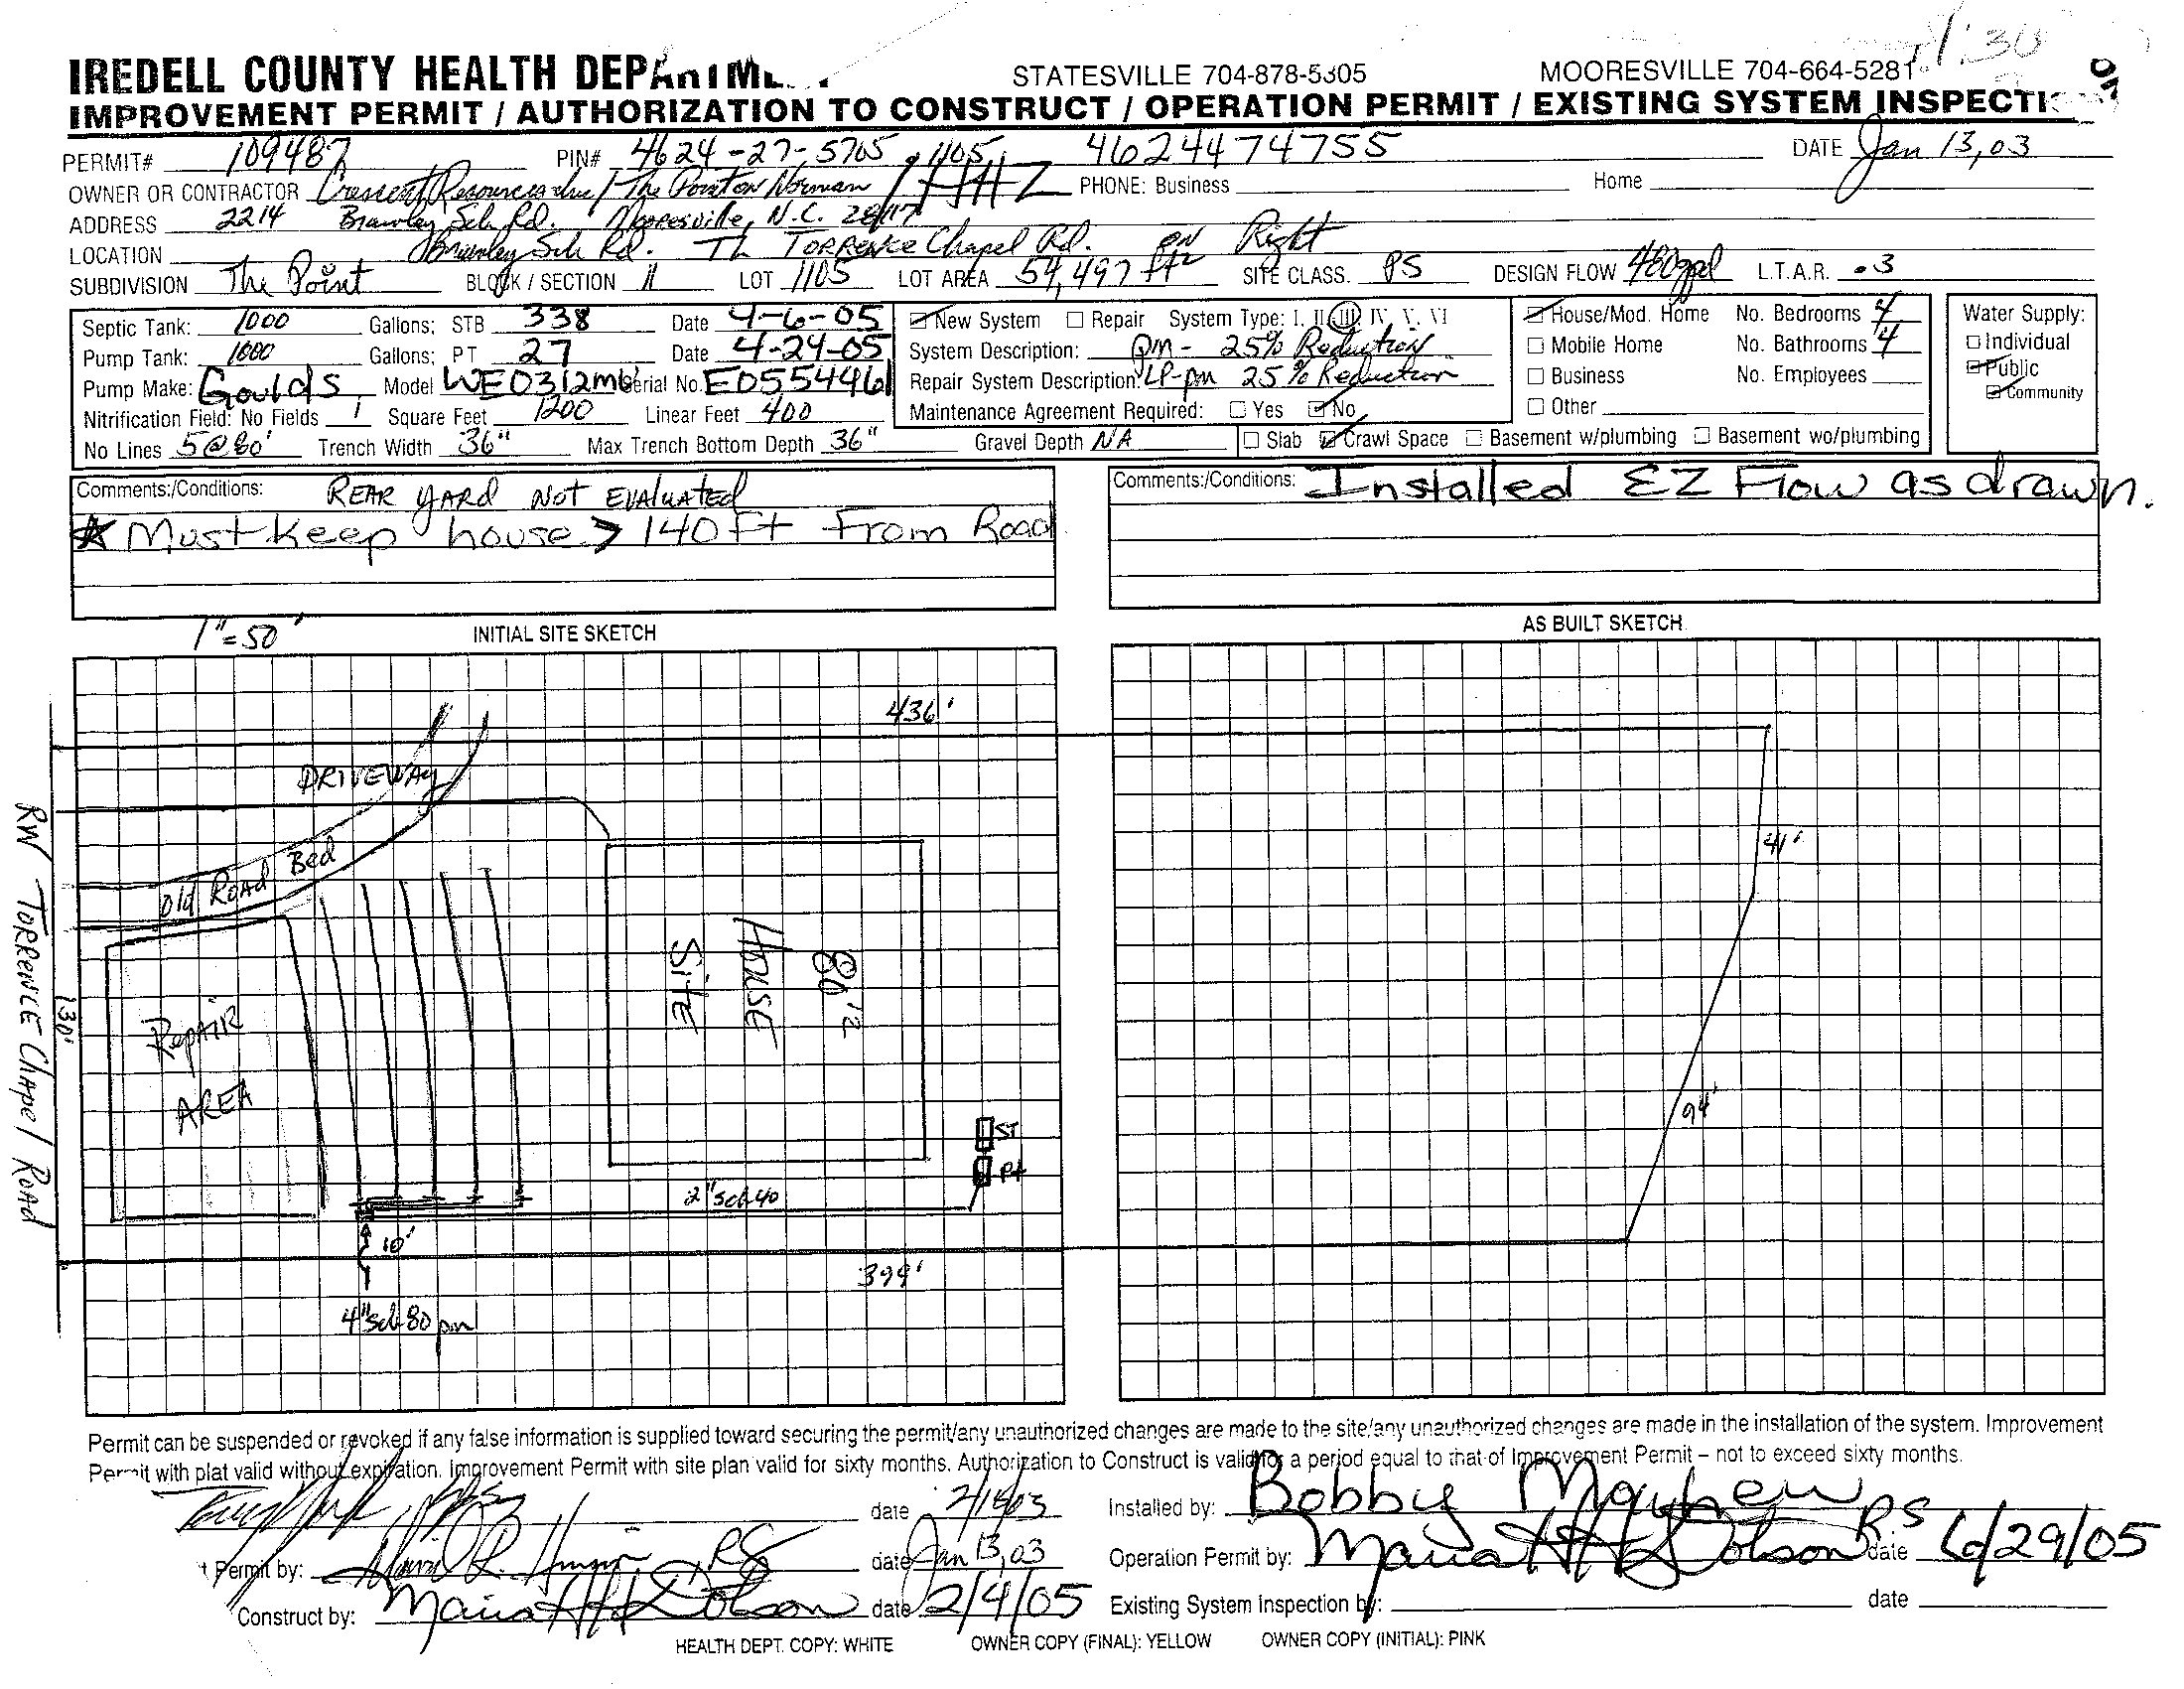 1:30
IREDELL COUNTY HEALTH DEPARTME STATESVILLE 704-878-5305 MOORESVILLE 704-664-5281
IMPROVEMENT PERMIT / AUTHORIZATION TO CONSTRUCT / OPERATION PERMIT / EXISTING SYSTEM INSPECTI
PERMIT# 109487 PIN# 4624-27-5705 .1105 4624474755 DATE Jan 13, 03
OWNER OR CONTRACTOR Crescent Resources Inc / The Point on Norman PHONE: Business Home
ADDRESS 2214 Brawley Sch Rd. Mooresville, N.C. 28117
LOCATION Brawley Sch Rd. TL TORRENCE Chapel Rd. on Right
SUBDIVISION The Point BLOCK / SECTION 11 LOT 1105 LOT AREA 54,497 ft2 SITE CLASS. PS DESIGN FLOW 480gpd L.T.A.R. .3
Septic Tank: 1000 Gallons: STB 338 Date 4-6-05 New System Repair System Type: I. II. III IV. V. VI House/Mod. Home No. Bedrooms 4 Water Supply:
Pump Tank: 1000 Gallons: PT 27 Date 4-24-05 System Description: pm - 25% Reduction Mobile Home No. Bathrooms 4 Individual
Pump Make: Goulds Model WE0312m Serial No. E0554461 Repair System Description: LP-pm 25% Reduction Business No. Employees Public
Nitrification Field: No Fields 1 Square Feet 1200 Linear Feet 400 Maintenance Agreement Required: Yes No Other Community
No Lines 5@80' Trench Width 36" Max Trench Bottom Depth 36" Gravel Depth NA Slab Crawl Space Basement w/plumbing Basement wo/plumbing
Comments:/Conditions: REAR YARD NOT EVALUATED
* Must keep house > 140 Ft From Road
Comments:/Conditions: Installed EZ Flow as drawn.
1"=50' INITIAL SITE SKETCH AS BUILT SKETCH
436'
DRIVEWAY
41'
Old ROAD Bed
R/W TORRENCE Chapel Road
130'
RepAIR
AREA
80'
HOUSE
SITE
94'
ST
Pt
2" Sch 40
10'
399'
4" Sch 80 pm
Permit can be suspended or revoked if any false information is supplied toward securing the permit/any unauthorized changes are made to the site/any unauthorized changes are made in the installation of the system. Improvement
Permit with plat valid without expiration. Improvement Permit with site plan valid for sixty months. Authorization to Construct is valid for a period equal to that of Improvement Permit – not to exceed sixty months.
date Installed by: Bobby Mayhew
t Permit by: RS date Jan 13, 03 Operation Permit by: Maria H Dobson R.S date 6/29/05
Construct by: Maria H Dobson date 2/4/05 Existing System Inspection by: date
HEALTH DEPT. COPY: WHITE OWNER COPY (FINAL): YELLOW OWNER COPY (INITIAL): PINK